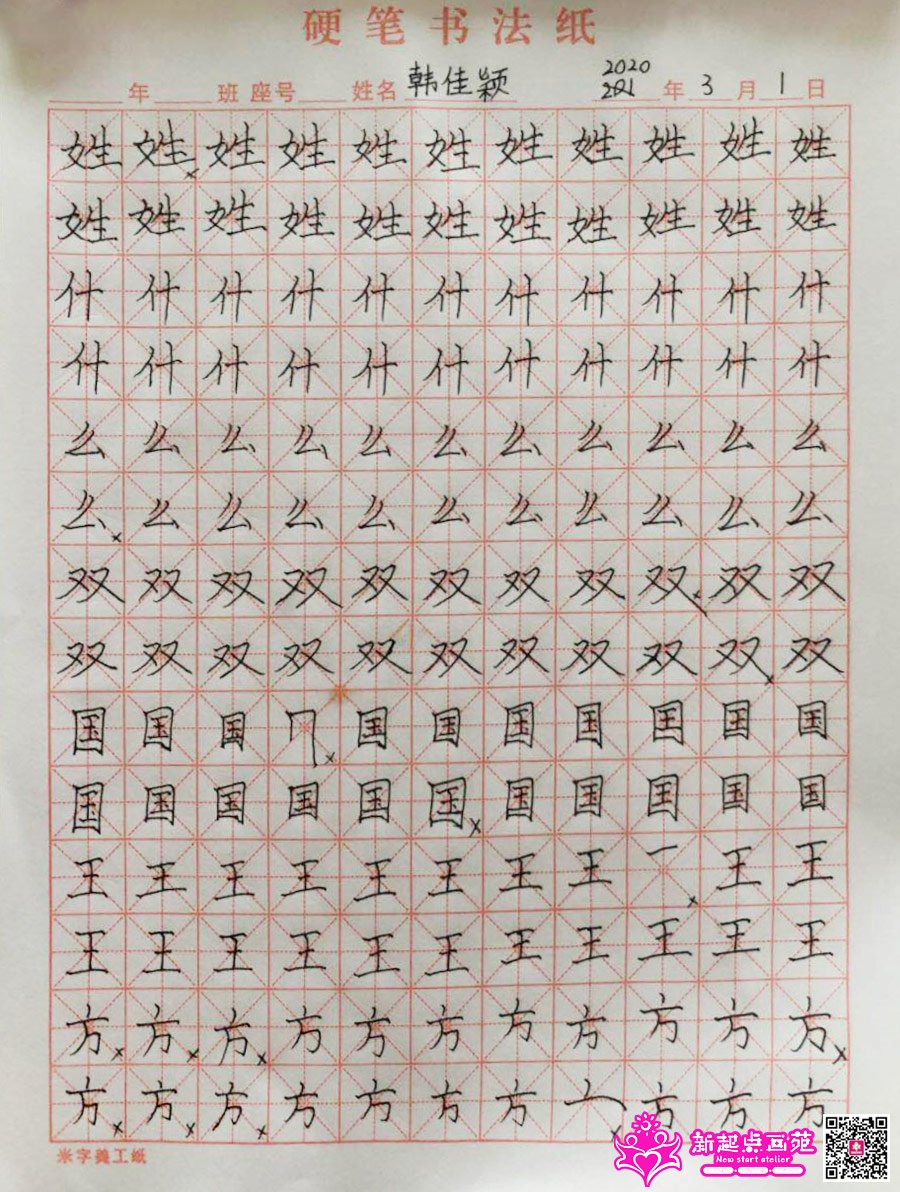 硬笔书法纸
年 班 座号 姓名 韩佳颖 2020 年 3 月 1 日
姓 姓 姓 姓 姓 姓 姓 姓 姓 姓 姓
姓 姓 姓 姓 姓 姓 姓 姓 姓 姓 姓
什 什 什 什 什 什 什 什 什 什 什
什 什 什 什 什 什 什 什 什 什 什
么 么 么 么 么 么 么 么 么 么 么
么 么 么 么 么 么 么 么 么 么 么
双 双 双 双 双 双 双 双 双 双 双
双 双 双 双 双 双 双 双 双 双 双
国 国 国 冂 国 国 国 国 国 国 国
国 国 国 国 国 国 国 国 国 国 国
王 王 王 王 王 王 王 王 一 王 王
王 王 王 王 王 王 王 王 王 王 王
方 方 方 方 方 方 方 方 方 方 方
方 方 方 方 方 方 方 亠 方 方 方
米字美工纸
新起点画苑
New start atelier